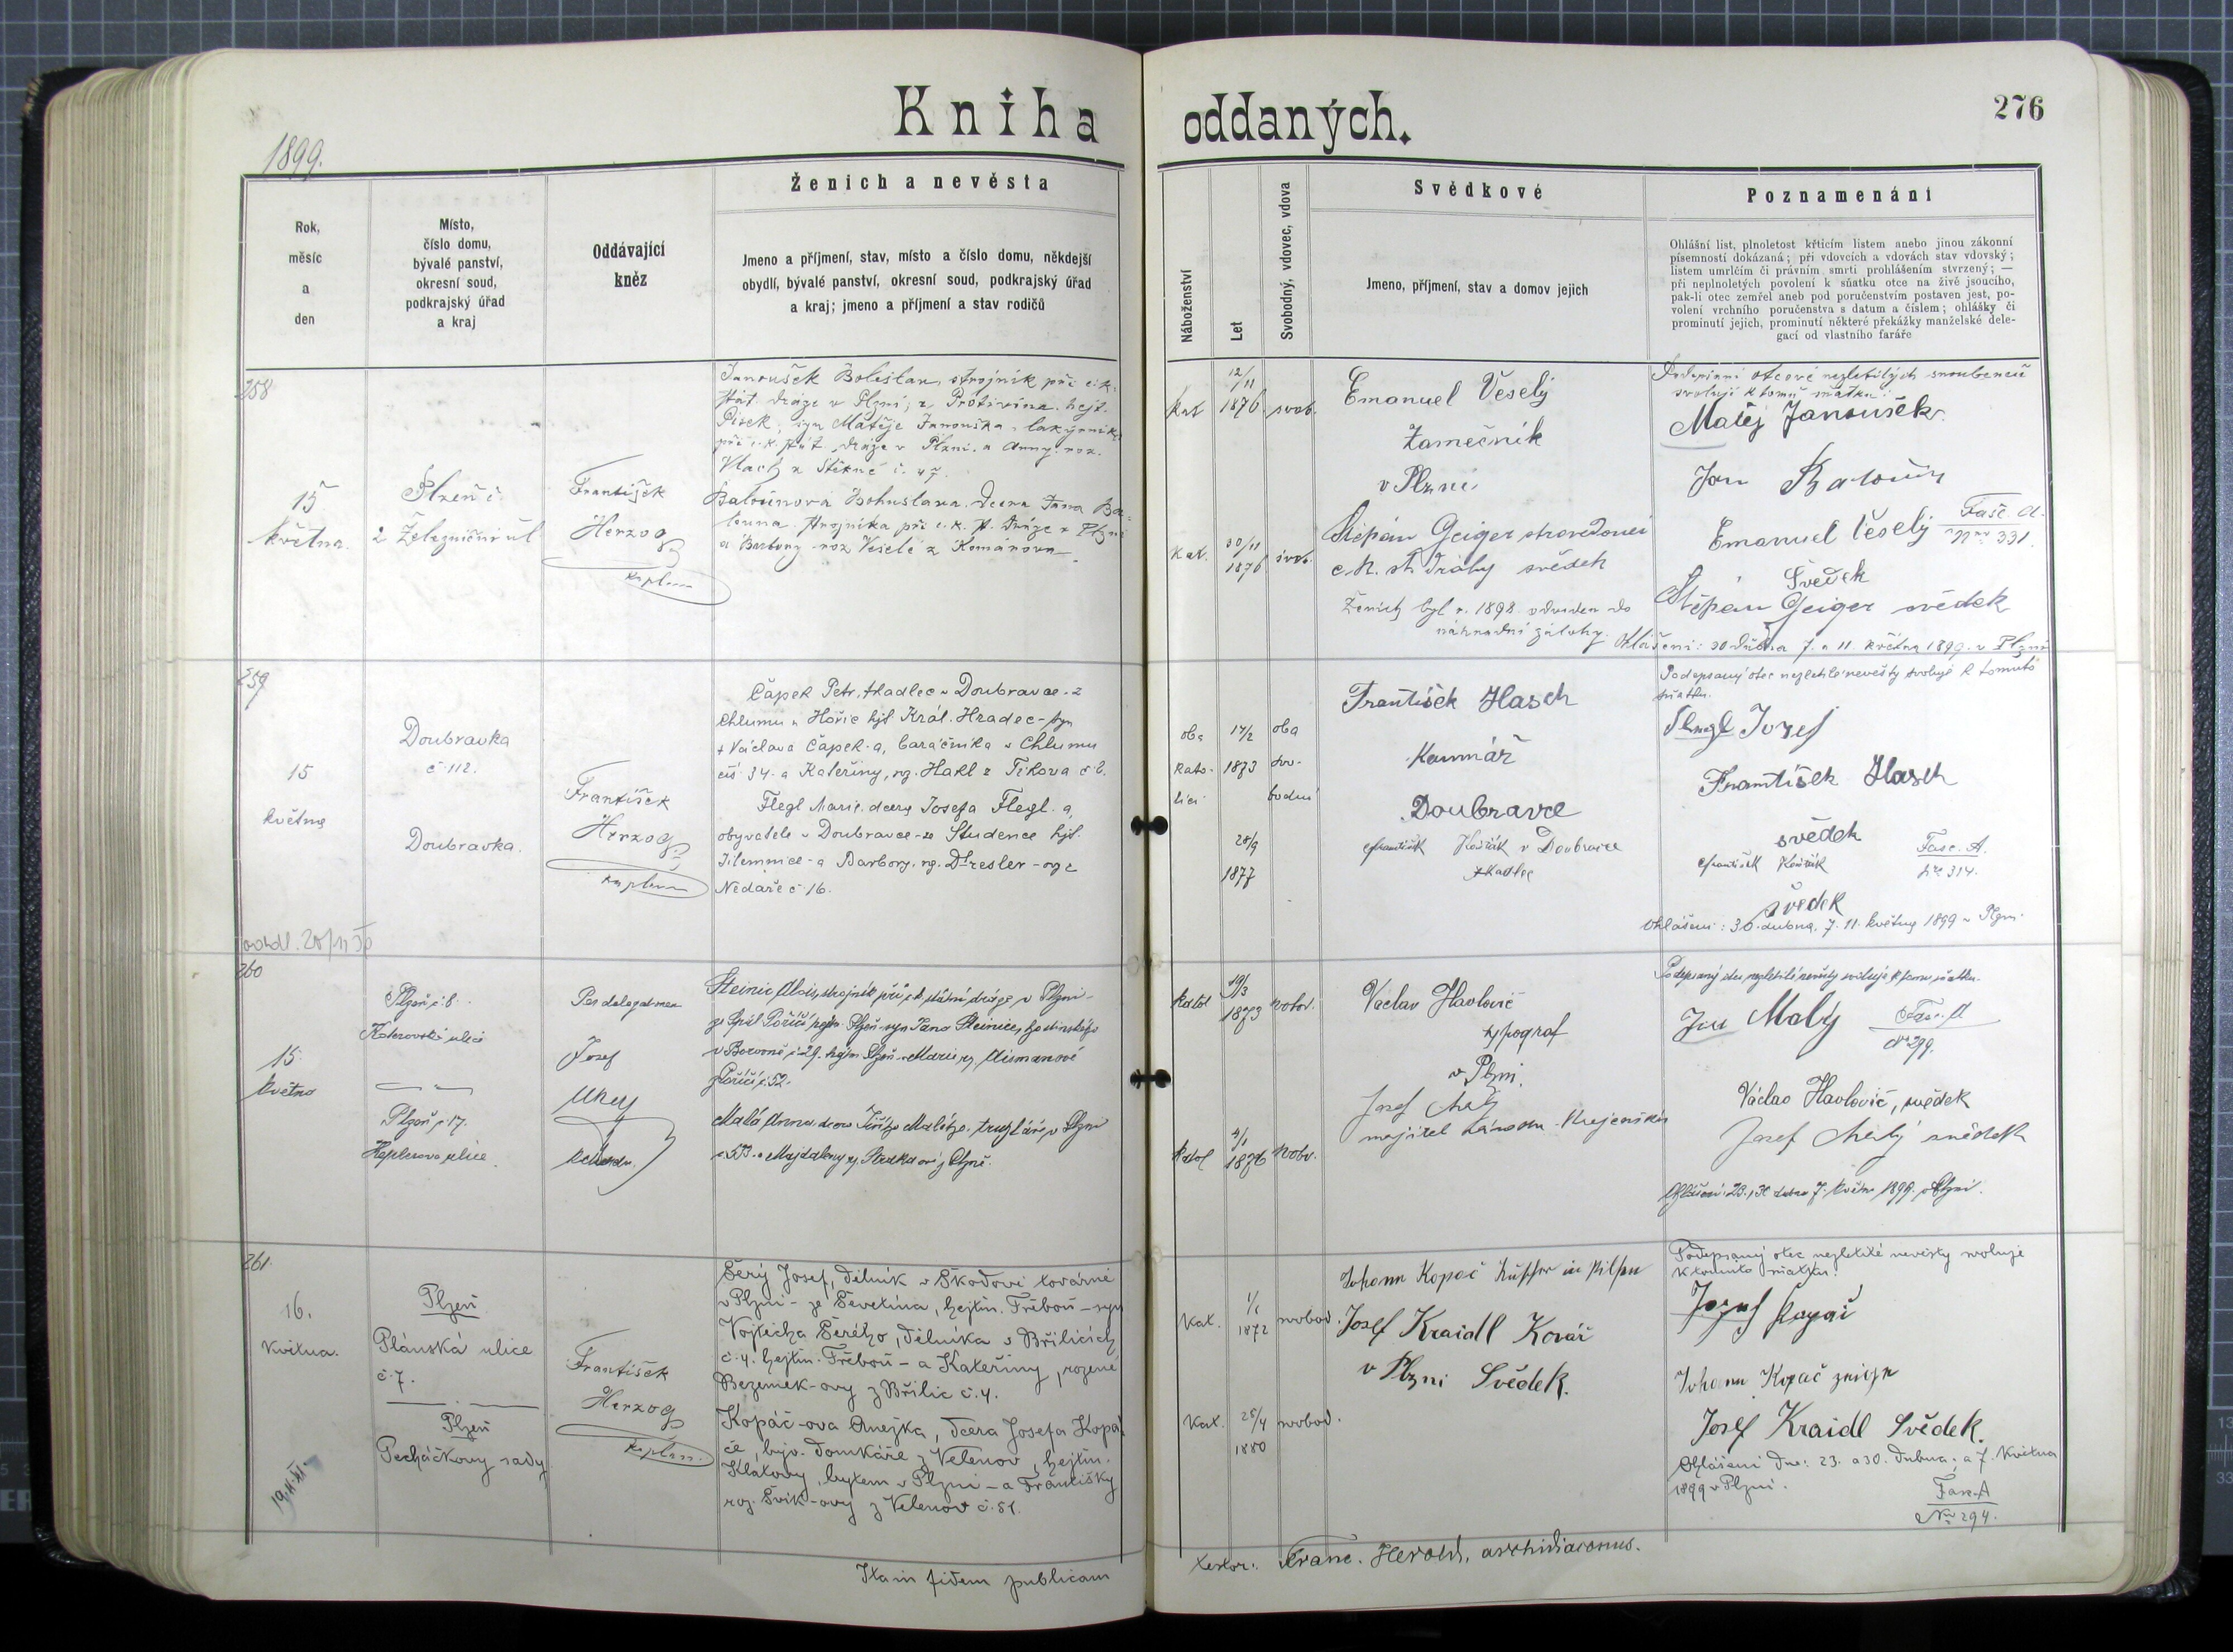 Kniha oddaných.
276
1899.
Ženich a nevěsta
Svědkové
Poznamenání
Rok,
měsíc
a
den
Místo,
číslo domu,
bývalé panství,
okresní soud,
podkrajský úřad
a kraj
Oddávající
kněz
Jmeno a příjmení, stav, místo a číslo domu, někdejší
obydlí, bývalé panství, okresní soud, podkrajský úřad
a kraj; jmeno a příjmení a stav rodičů
Náboženství
Let
Svobodný, vdovec, vdova
Jmeno, příjmení, stav a domov jejich
Ohlášní list, plnoletost křticím listem anebo jinou zákonní
písemností dokázaná; při vdovcích a vdovách stav vdovský;
listem umrlčím či právním smrti prohlášením stvrzený; —
při neplnoletých povolení k sňatku otce na živě jsoucího,
pak-li otec zemřel aneb pod poručenstvím postaven jest, po-
volení vrchního poručenstva s datum a číslem; ohlášky či
prominutí jejich, prominutí některé překážky manželské dele-
gací od vlastního faráře
258
15
května
Plzeň č.
2 Železniční ul
František
Herzog
kaplan
Janoušek Boleslav, strojník při c.k.
stát. dráze v Plzni, z Protivína hejt.
Písek, syn Matěje Janouška, lakýrníka
při c.k. stát. dráze v Plzni a Anny roz.
Vlach z Štěkně č. 47.
Balounová Bohuslava, dcera Jana Ba-
louna, strojníka při c.k. st. dráze v Plzni
a Barbory roz Veselé z Komárova
kat
12/11
1876
svob.
kat.
30/11
1876
svob.
Emanuel Veselý
Zámečník
v Plzni
Štěpán Geiger strovedoucí
c. k. st. dráhy svědek
Ženich byl r. 1898 odveden do
náhradní zálohy.
Podepsaní otcové nezletilých snoubenců
svolují k tomu sňatku.
Matěj Janoušek
Jan Baloun
Emanuel Veselý
Svědek
Fasc. A.
Nro 331.
Štěpán Geiger svědek
Ohlášení: 30 dubna 7. a 11. května 1899. v Plzni
259
15
května
Doubravka
č. 112.
Doubravka.
František
Herzog
kaplan
Čapek Petr, tkadlec v Doubravce - z
Chlumu u Hořic hjt. Král. Hradec - syn
† Václava Čapek-a, baráčníka v Chlumu
čís. 34. a Kateřiny, rz. Hakl z Tikova č. 2.
Flegl Marie, dcera Josefa Flegl-a,
obyvatele v Doubravce - ze Studence hjt.
Jilemnice - a Barbory, rz. Dresler-ov z
Nedaře č. 16.
oba
kato-
lici
17/2
1873
28/9
1877
oba
svo-
bodní
František Hasch
Kamnář
Doubravce
František Košťák v Doubravce
tkadlec
Podepsaný otec nezletilé nevěsty svoluje k tomuto
sňatku.
Flegl Josef
František Hasch
svědek
František Košťák
svědek
Fasc. A.
Nro 314.
Ohlášení: 30. dubna, 7. 11. května 1899 v Plzni
260
15.
května
Plzeň č. 8.
Koterovská ulice
Plzeň č. 17.
Haplesova ulice
Per delegationem
Josef
Steinic Alois, strojník při c.k. státní dráze v Plzni -
Malá Anna dcera Jiřího Malého, truhláře v Plzni
katol
19/3
1873
svobod.
katol
4/1
1876
svobod.
Václav Havlovič
typograf
v Plzni.
Josef Malý
majitel závodu Krejčovského
Podepsaný otec nezletilé nevěsty svoluje k tomu sňatku.
Jiří Malý
Fasc. A
Nro 299.
Václav Havlovič, svědek
Josef Malý svědek
Ohlášení: 23., 30. dubna 7. května 1899. v Plzni.
261
16.
května.
Plzeň
Plánská ulice
č. 7.
Plzeň
Pecháčkovy sady
František
Herzog
kaplan.
Šerý Josef, dělník v Škodově továrně
v Plzni - ze Ševětína, hejtm. Třeboň - syn
Vojtěcha Šerého, dělníka v Břilicích
č. 4. hejtm. Třeboň - a Kateřiny, rozené
Bezemek-ovy z Břilic č. 4.
Kopáč-ova Anežka, dcera Josefa Kopá-
če, býv. domkáře z Velenov, hejtm.
Klatovy, bytem v Plzni - a Františky
roz. Švik-ovy z Velenov č. 51.
Kat.
1/1
1872
svobod.
Kat.
25/4
1880
svobod.
Johann Kopač in Pilsen
Josef Kraidl Kovář
v Plzni Svědek.
Podepsaný otec nezletilé nevěsty svoluje
k tomuto sňatku:
Josef Kopáč
Johann Kopač
Josef Kraidl Svědek.
Ohlášení dne: 23. a 30. dubna; a 7. května
1899 v Plzni.
Fasc. A
Nro 294.
Ita in fidem publicam
testor: Franc. Herold, archidiaconus.